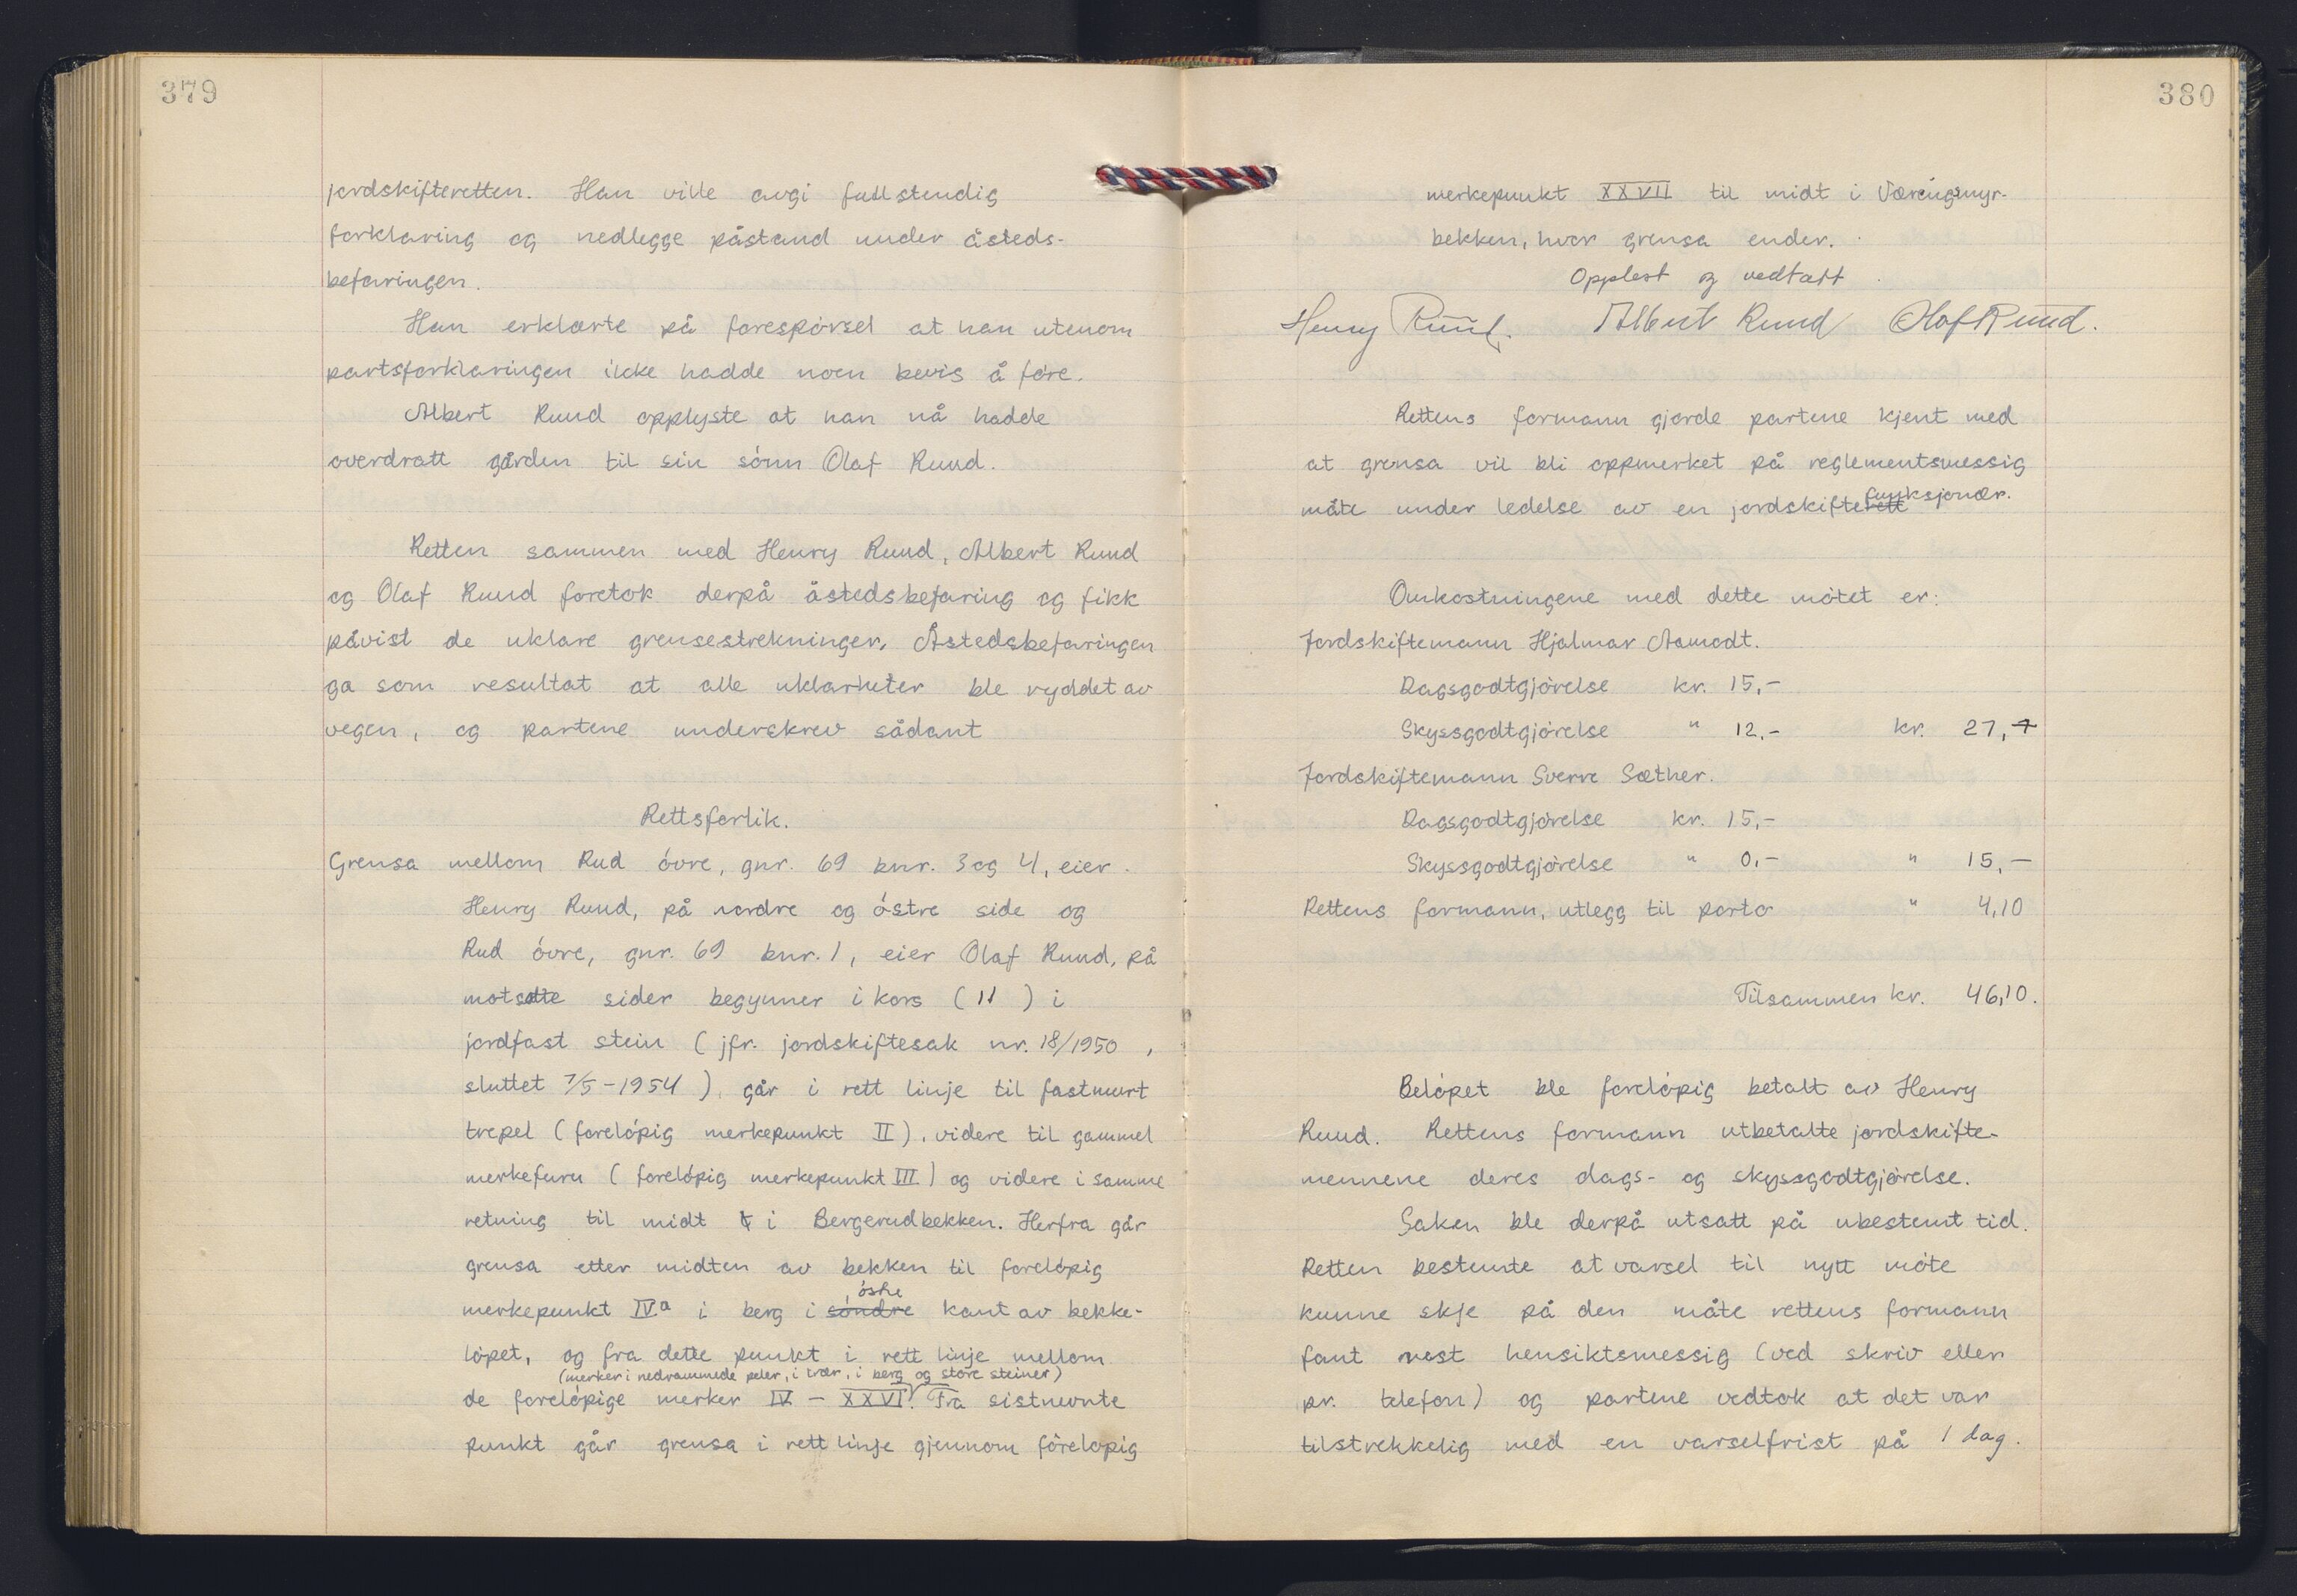 379
jordskifteretten. Han ville avgi fullstendig
forklaring og nedlegge påstand under åsteds-
befaringen.
Han erklærte på forespórsel at han utenom
partsforklaringen ikke hadde noen bevis å fóre.
Albert Ruud opplyste at han nå hadde
overdratt gården til sin sónn Olaf Ruud.
Retten sammen med Henry Ruud, Albert Ruud
og Olaf Ruud foretok derpå åstedsbefaring og fikk
påvist de uklare grensestrekninger. Åstedsbefaringen
ga som resultat at alle uklarheter ble ryddet av
vegen, og partene underskrev sådant
Rettsforlik.
Grensa mellom Rud óvre, gnr. 69 bnr. 3 og 4, eier
Henry Ruud, på nordre og óstre side og
Rud óvre, gnr. 69 bnr. 1, eier Olaf Ruud, på
motsatte sider begynner i kors ( 11 ) i
jordfast stein ( jfr. jordskiftesak nr. 18/1950 ,
sluttet 7/5-1954 ), går i rett linje til fastmurt
trepel (forelópig merkepunkt II), videre til gammel
merkefuru ( forelópig merkepunkt III ) og videre i samme
retning til midt i Bergerudbekken. Herfra går
grensa etter midten av bekken til forelópig
óstre
merkepunkt IVa i berg i sóndre kant av bekke-
lópet, og fra dette punkt i rett linje mellom
(merker i nedrammede peler, i trær, i berg og store steiner)
de forelópige merker IV - XXVI. Fra sistnevnte
punkt går grensa i rett linje gjennom fórelopig
380
merkepunkt XXVII til midt i Væringsmyr-
bekken, hvor grensa ender.
Opplest og vedtatt
Henry Ruud. Albert Ruud Olaf Ruud.
Rettens formann gjorde partene kjent med
at grensa vil bli oppmerket på reglementsmessig
funksjonær.
måte under ledelse av en jordskifterett
Omkostningene med dette mótet er:
Jordskiftemann Hjalmar Aamodt.
Dagsgodtgjórelse kr. 15,-
Skyssgodtgjórelse " 12,- kr. 27,-
Jordskiftemann Sverre Sæther.
Dagsgodtgjórelse kr. 15,-
Skyssgodtgjórelse " 0,- " 15,-
Rettens formann, utlegg til porto " 4,10
Tilsammen kr. 46,10.
Belópet ble forelópig betalt av Henry
Ruud. Rettens formann utbetalte jordskifte-
mennene deres dags- og skyssgodtgjórelse.
Saken ble derpå utsatt på ubestemt tid.
Retten bestemte at varsel til nytt móte
kunne skje på den måte rettens formann
fant mest hensiktsmessig (ved skriv eller
pr. telefon) og partene vedtok at det var
tilstrekkelig med en varselfrist på 1 dag.